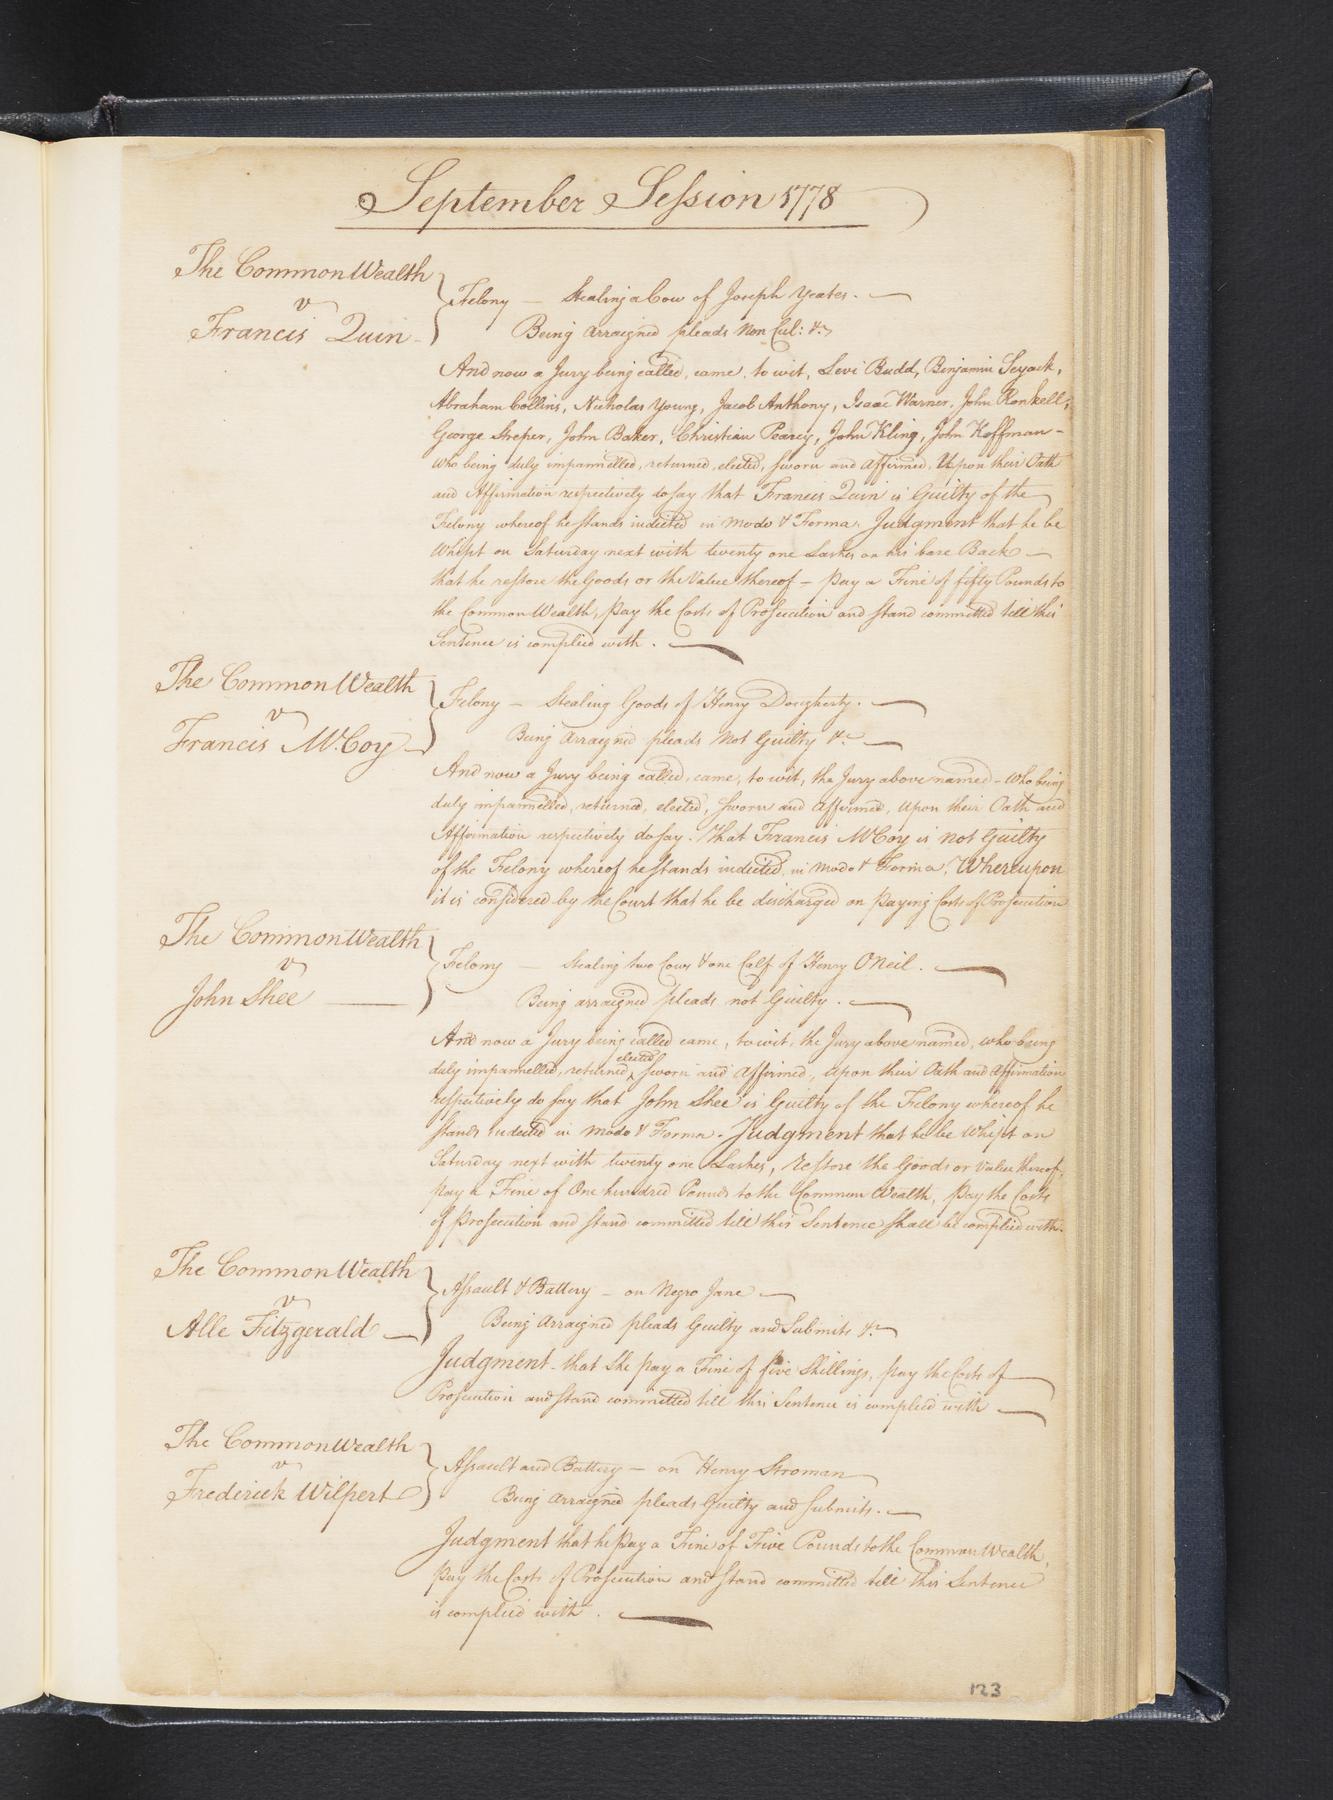 September Session 1778
The CommonWealth
v
Francis Quin
Felony — Stealing a Cow of Joseph Yeates.
Being arraigned pleads Non Cul: &c
And now a Jury being called, came, to wit, Levi Budd, Benjamin
Abraham Collins, Nicholas Young, Jacob Anthony, Isaac Warner, John Ronkell,
George Streper, John Baker, Christian Pearcy, John Kling, John Hoffman —
who being duly impannelled, returned, elected, sworn and affirmed, Upon their Oath
and Affirmation respectively do say that Francis Quin is Guilty of the
Felony whereof he stands indicted in Modo & Forma. Judgment that he be
Whipt on Saturday next with twenty one Lashes on his bare Back —
that he restore the Goods or the Value thereof — pay a Fine of fifty Pounds to
the CommonWealth, pay the Costs of Prosecution and stand committed till this
Sentence is complied with.
The CommonWealth
v
Francis McCoy
Felony — Stealing Goods of Henry Dougherty.
Being Arraigned pleads Not Guilty &c
And now a Jury being called, came, to wit, the Jury above named — Who being
duly impannelled, returned, elected, sworn and affirmed, upon their Oath and
Affirmation respectively do say. That Francis McCoy is not Guilty
of the Felony whereof he stands indicted, in Modo & Forma. Whereupon
it is considered by the Court that he be discharged on paying Costs of Prosecution
The CommonWealth
v
John Shee
Felony — Stealing two Cows & one Calf of Henry ONeil.
Being arraigned pleads not Guilty.
And now a Jury being called came, to wit, the Jury above named, who being
duly impannelled, returned, elected sworn and affirmed, upon their Oath and affirmation
respectively do say that John Shee is Guilty of the Felony whereof he
stands indicted in Modo & Forma. Judgment that he be Whipt on
Saturday next with twenty one Lashes, restore the Goods or Value thereof,
pay a Fine of One hundred Pounds to the Common Wealth, pay the Costs
of Prosecution and stand committed till this Sentence shall be complied with.
The CommonWealth
v
Alle Fitzgerald
Assault & Battery — on Negro Jane
Being Arraigned pleads Guilty and Submits &c
Judgment — that she pay a Fine of five Shillings, pay the Costs of
Prosecution and stand committed till this Sentence is complied with
The CommonWealth
v
Frederick Wilpert
Assault and Battery — on Henry Stroman
Being arraigned pleads Guilty and submits.
Judgment that he pay a Fine of Five Pounds to the CommonWealth,
pay the Costs of Prosecution and stand committed till this Sentence
is complied with.
123